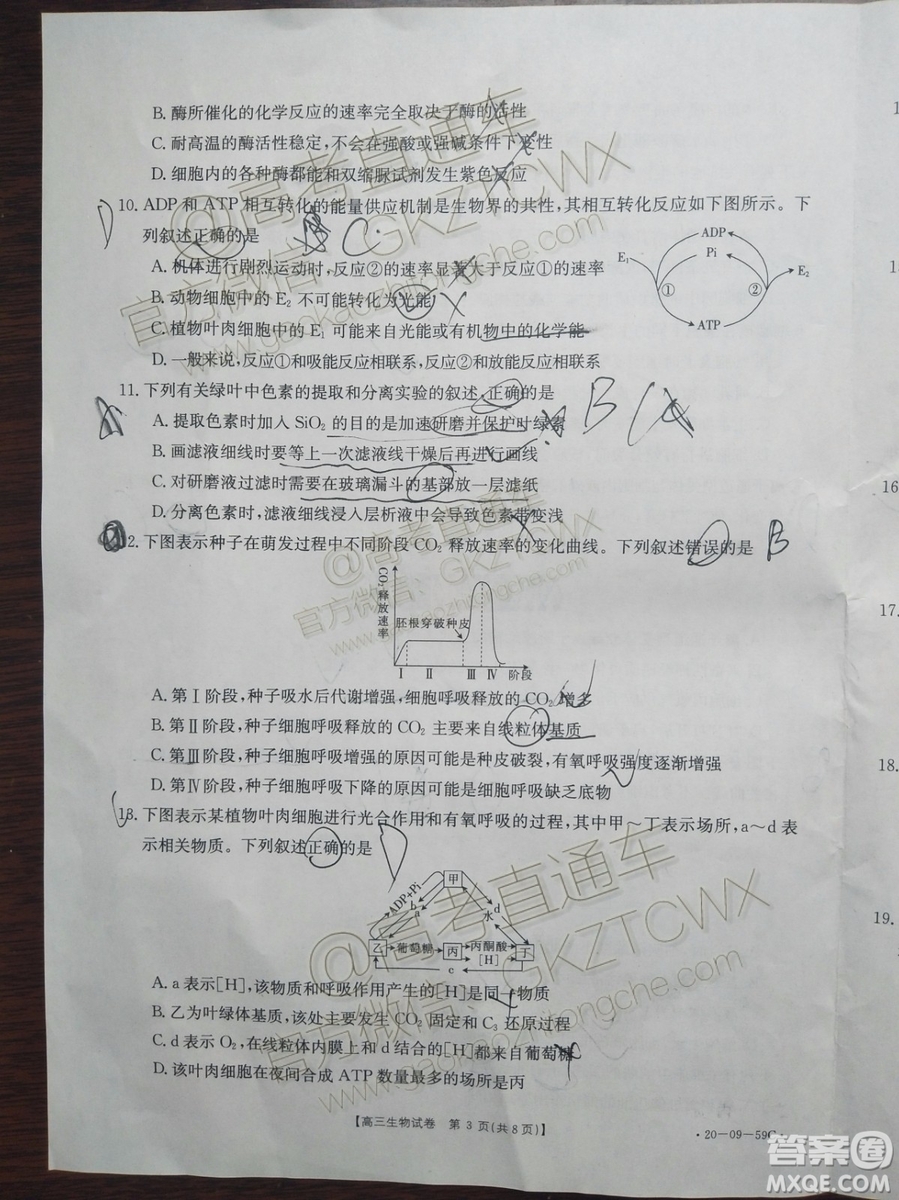 B. 酶所催化的化学反应的速率完全取决于酶的活性
C. 耐高温的酶活性稳定，不会在强酸或强碱条件下变性
D. 细胞内的各种酶都能和双缩脲试剂发生紫色反应
10. ADP 和 ATP 相互转化的能量供应机制是生物界的共性，其相互转化反应如下图所示。下
列叙述正确的是 C
A. 机体进行剧烈运动时，反应②的速率显著大于反应①的速率
B. 动物细胞中的 E₂ 不可能转化为光能
C. 植物叶肉细胞中的 E₁ 可能来自光能或有机物中的化学能
D. 一般来说，反应①和吸能反应相联系，反应②和放能反应相联系
ADP
Pi
E₁
E₂
①
②
ATP
11. 下列有关绿叶中色素的提取和分离实验的叙述，正确的是 B
A. 提取色素时加入 SiO₂ 的目的是加速研磨并保护叶绿素
B. 画滤液细线时要等上一次滤液线干燥后再进行画线
C. 对研磨液过滤时需要在玻璃漏斗的基部放一层滤纸
D. 分离色素时，滤液细线浸入层析液中会导致色素带变浅
12. 下图表示种子在萌发过程中不同阶段 CO₂ 释放速率的变化曲线。下列叙述错误的是 B
CO₂释放速率
胚根穿破种皮
Ⅰ Ⅱ Ⅲ Ⅳ 阶段
A. 第Ⅰ阶段，种子吸水后代谢增强，细胞呼吸释放的 CO₂ 增多
B. 第Ⅱ阶段，种子细胞呼吸释放的 CO₂ 主要来自线粒体基质
C. 第Ⅲ阶段，种子细胞呼吸增强的原因可能是种皮破裂，有氧呼吸强度逐渐增强
D. 第Ⅳ阶段，种子细胞呼吸下降的原因可能是细胞呼吸缺乏底物
13. 下图表示某植物叶肉细胞进行光合作用和有氧呼吸的过程，其中甲～丁表示场所，a～d 表
示相关物质。下列叙述正确的是 D
甲
ADP+Pi
b
a
水
d
乙 葡萄糖 丙 丙酮酸 [H] 丁
c
A. a 表示[H]，该物质和呼吸作用产生的[H]是同一物质
B. 乙为叶绿体基质，该处主要发生 CO₂ 固定和 C₃ 还原过程
C. d 表示 O₂，在线粒体内膜上和 d 结合的[H]都来自葡萄糖
D. 该叶肉细胞在夜间合成 ATP 数量最多的场所是丙
【高三生物试卷 第 3 页(共 8 页)】
·20-09-59C·
1
15
16
17.
18.
19.
@高考直通车
官方微信：GKZTCWX
www.gaokaozhitongche.com
@高考直通车
官方微信：GKZTCWX
www.gaokaozhitongche.com
@高考直通车
官方微信：GKZTCWX
www.gaokaozhitongche.com
答案圈
MXQE.COM